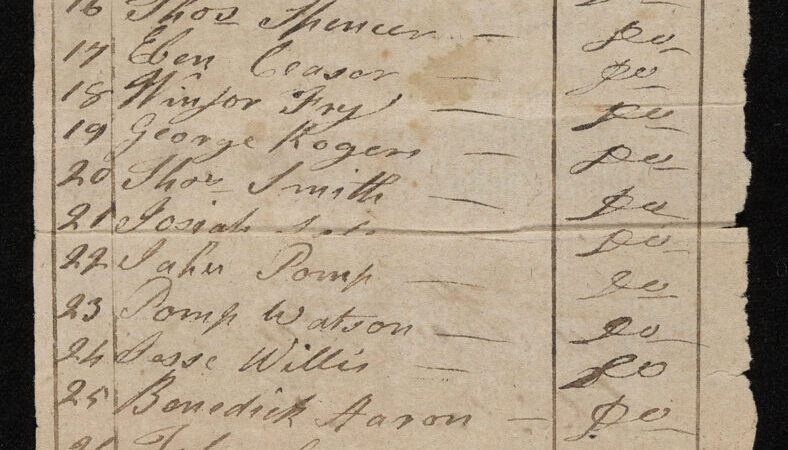 16 Thos Spencer — Do
17 Eben Ceasor — Do
18 Winsor Fry — Do
19 George Rogers — Do
20 Thos Smith — Do
21 Josiah Do
22 Pomp — Do
23 Pomp Watson — Do
24 Jesse Willis — Do
25 Benedick Aaron — Do